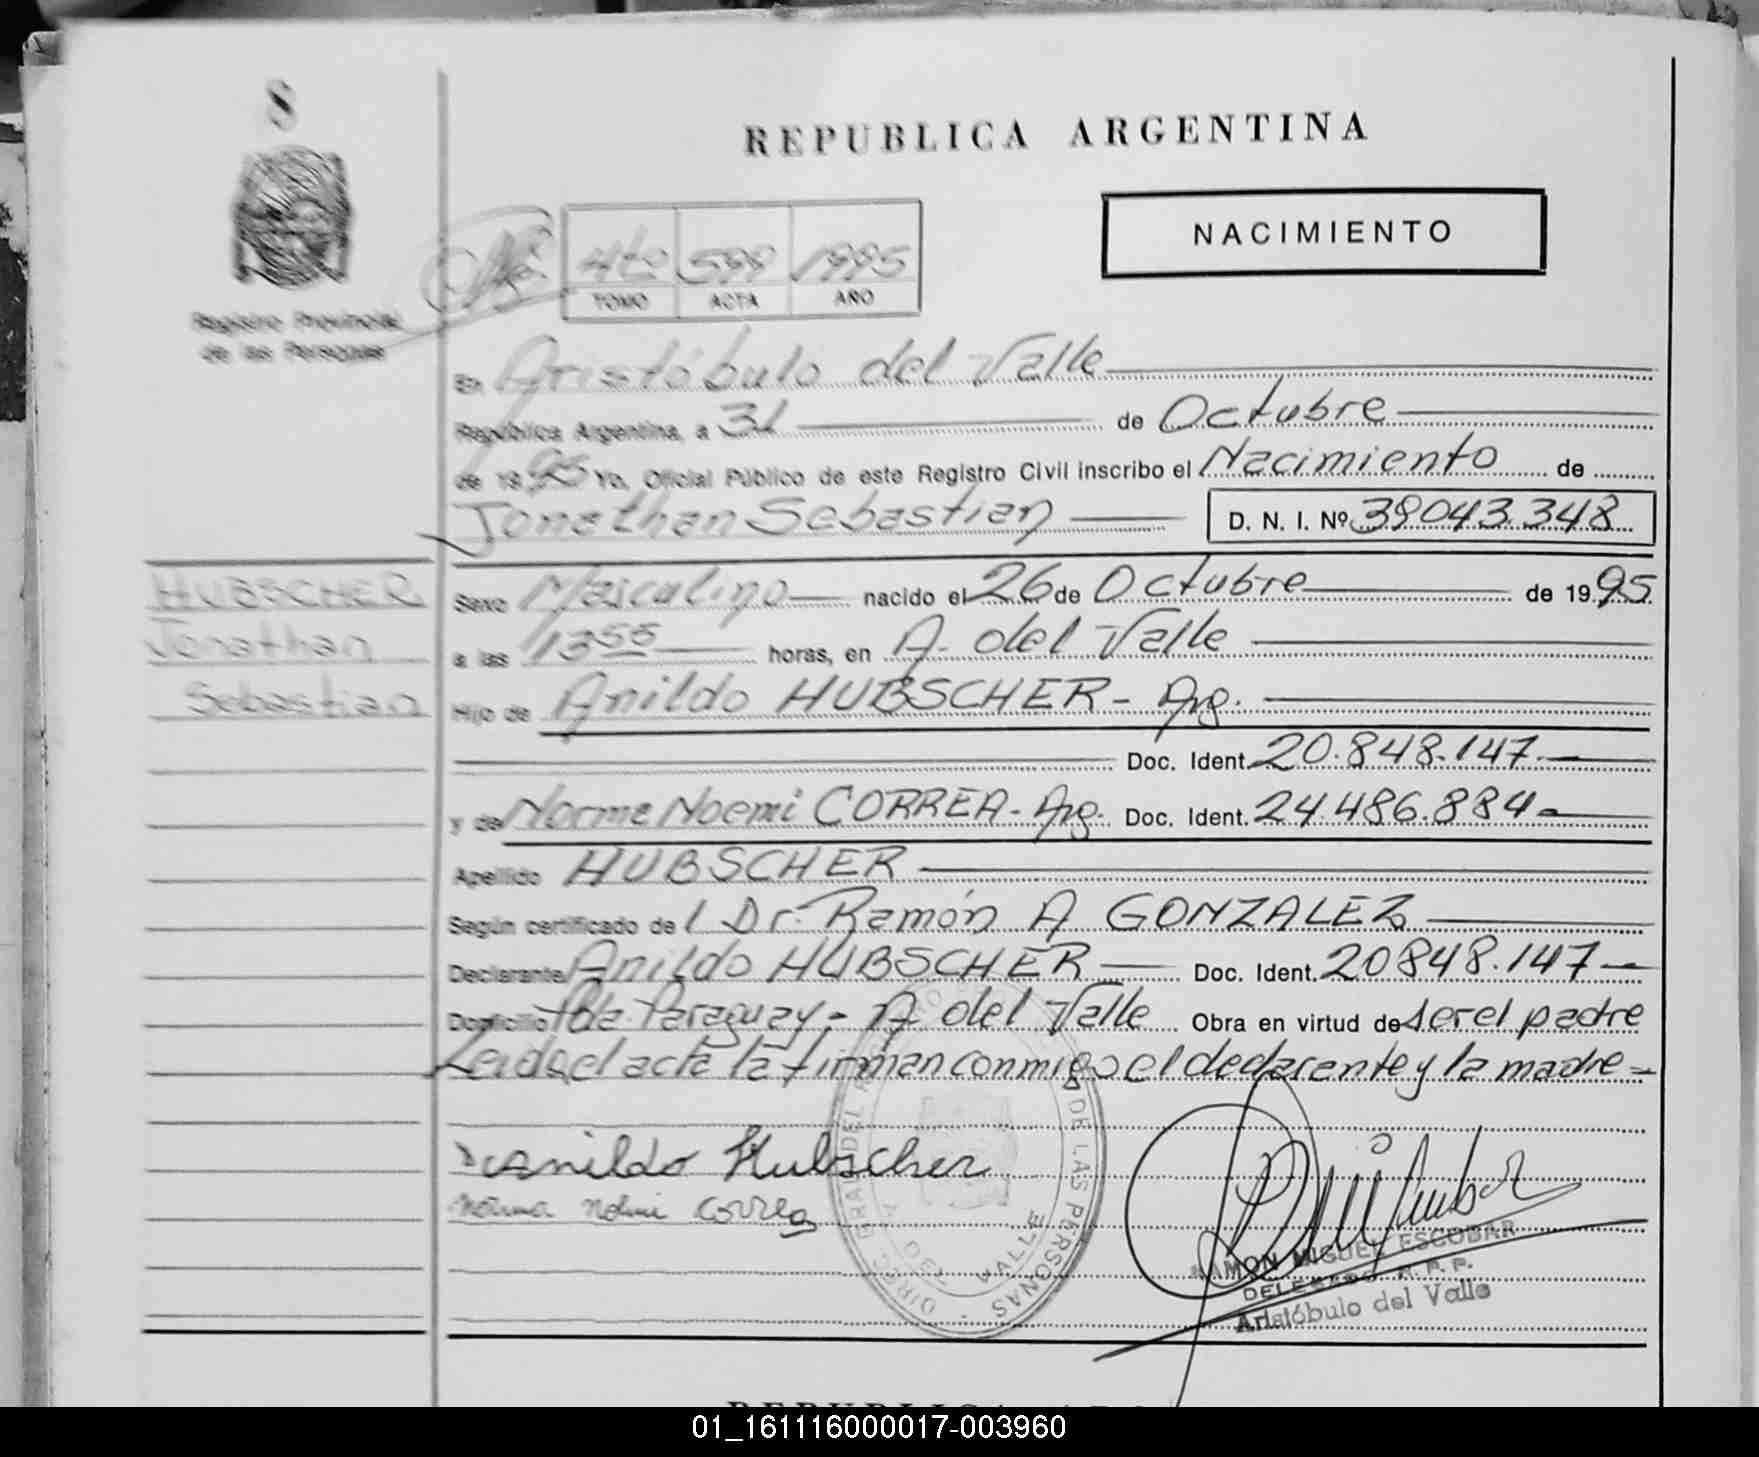 8
REPUBLICA ARGENTINA
NACIMIENTO
4to 599 1995
TOMO ACTA AÑO
Registro Provincial
de las Personas
En Aristóbulo del Valle
República Argentina, a 31 de Octubre
de 1995 Yo, Oficial Público de este Registro Civil inscribo el Nacimiento de
Jonathan Sebastian D. N. I. Nº 39043.348
HUBSCHER
Jonathan
Sebastian
Sexo Masculino nacido el 26 de Octubre de 1995
a las 1355 horas, en A. del Valle
Hijo de Anildo HUBSCHER - Arg.
Doc. Ident. 20.848.147.
y de Norma Noemi CORREA - Arg. Doc. Ident. 24.486.884
Apellido HUBSCHER
Según certificado del Dr. Ramón A GONZALEZ
Declarante Anildo HUBSCHER Doc. Ident. 20848.147
Domicilio Pda Paraguay - A del Valle Obra en virtud de ser el padre
Leida el acta la firman conmigo el declarante y la madre
Anildo Hubscher
Norma Nohmi Correa
DE LAS PERSONAS
A DEL VALLE
RAMON MIGUEL ESCOBAR
DELEGADO R. P. P.
Aristóbulo del Valle
01_161116000017-003960